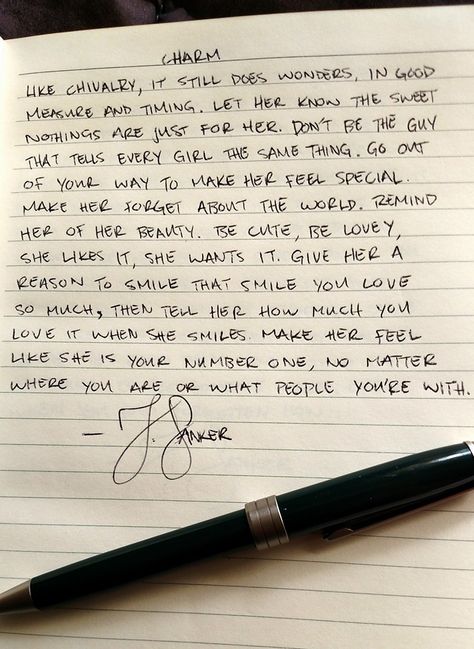 CHARM
LIKE CHIVALRY, IT STILL DOES WONDERS, IN GOOD
MEASURE AND TIMING. LET HER KNOW THE SWEET
NOTHINGS ARE JUST FOR HER. DON'T BE THE GUY
THAT TELLS EVERY GIRL THE SAME THING. GO OUT
OF YOUR WAY TO MAKE HER FEEL SPECIAL.
MAKE HER FORGET ABOUT THE WORLD. REMIND
HER OF HER BEAUTY. BE CUTE, BE LOVEY,
SHE LIKES IT, SHE WANTS IT. GIVE HER A
REASON TO SMILE THAT SMILE YOU LOVE
SO MUCH, THEN TELL HER HOW MUCH YOU
LOVE IT WHEN SHE SMILES. MAKE HER FEEL
LIKE SHE IS YOUR NUMBER ONE, NO MATTER
WHERE YOU ARE OR WHAT PEOPLE YOU'RE WITH.